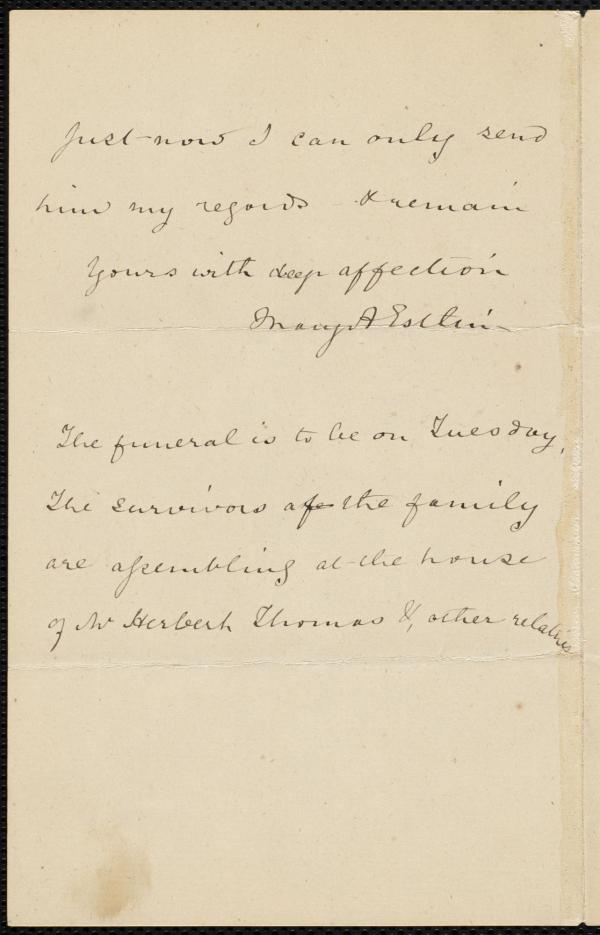 Just now I can only send
him my regards & remain
Yours with deep affection
Mary A Estlin
The funeral is to be on Tuesday,
The survivors of the family
are assembling at the house
of Mr Herbert Thomas &, other relatives